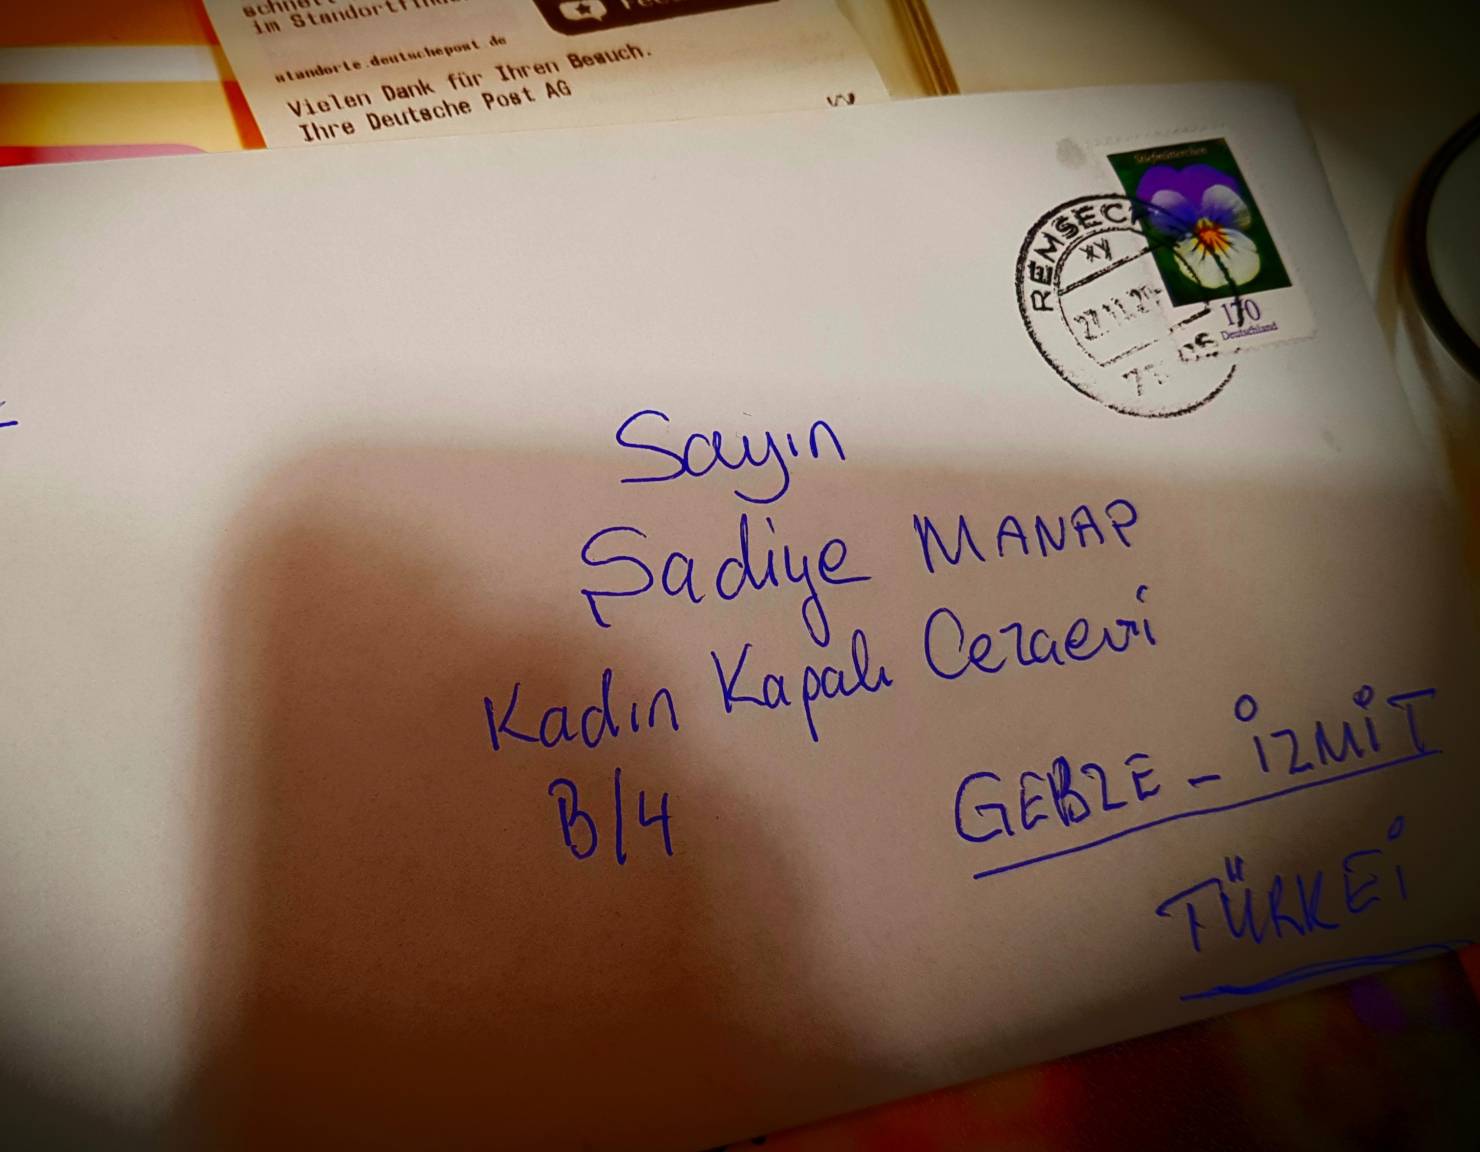 im Standortfinder
standorte.deutschepost.de
Vielen Dank für Ihren Besuch.
Ihre Deutsche Post AG
Stiefmütterchen
170
Deutschland
REMSECK
27.11.2
Sayın
Şadiye MANAP
Kadın Kapalı Cezaevi
B/4
GEBZE - İZMİT
TÜRKEİ